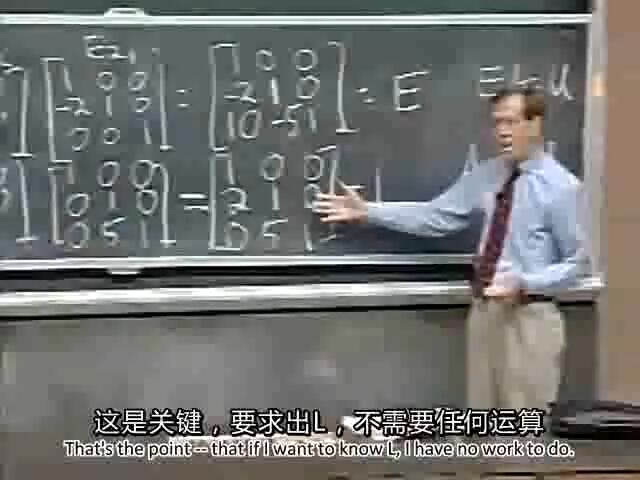 E21
1 0 0   1 0 0
-2 1 0 = -2 1 0 = E
0 0 1   10 -5 1
1 0 0   1 0 0
0 1 0 = 2 1 0 = L
0 5 1   0 5 1
这是关键，要求出L，不需要任何运算
That's the point -- that if I want to know L, I have no work to do.